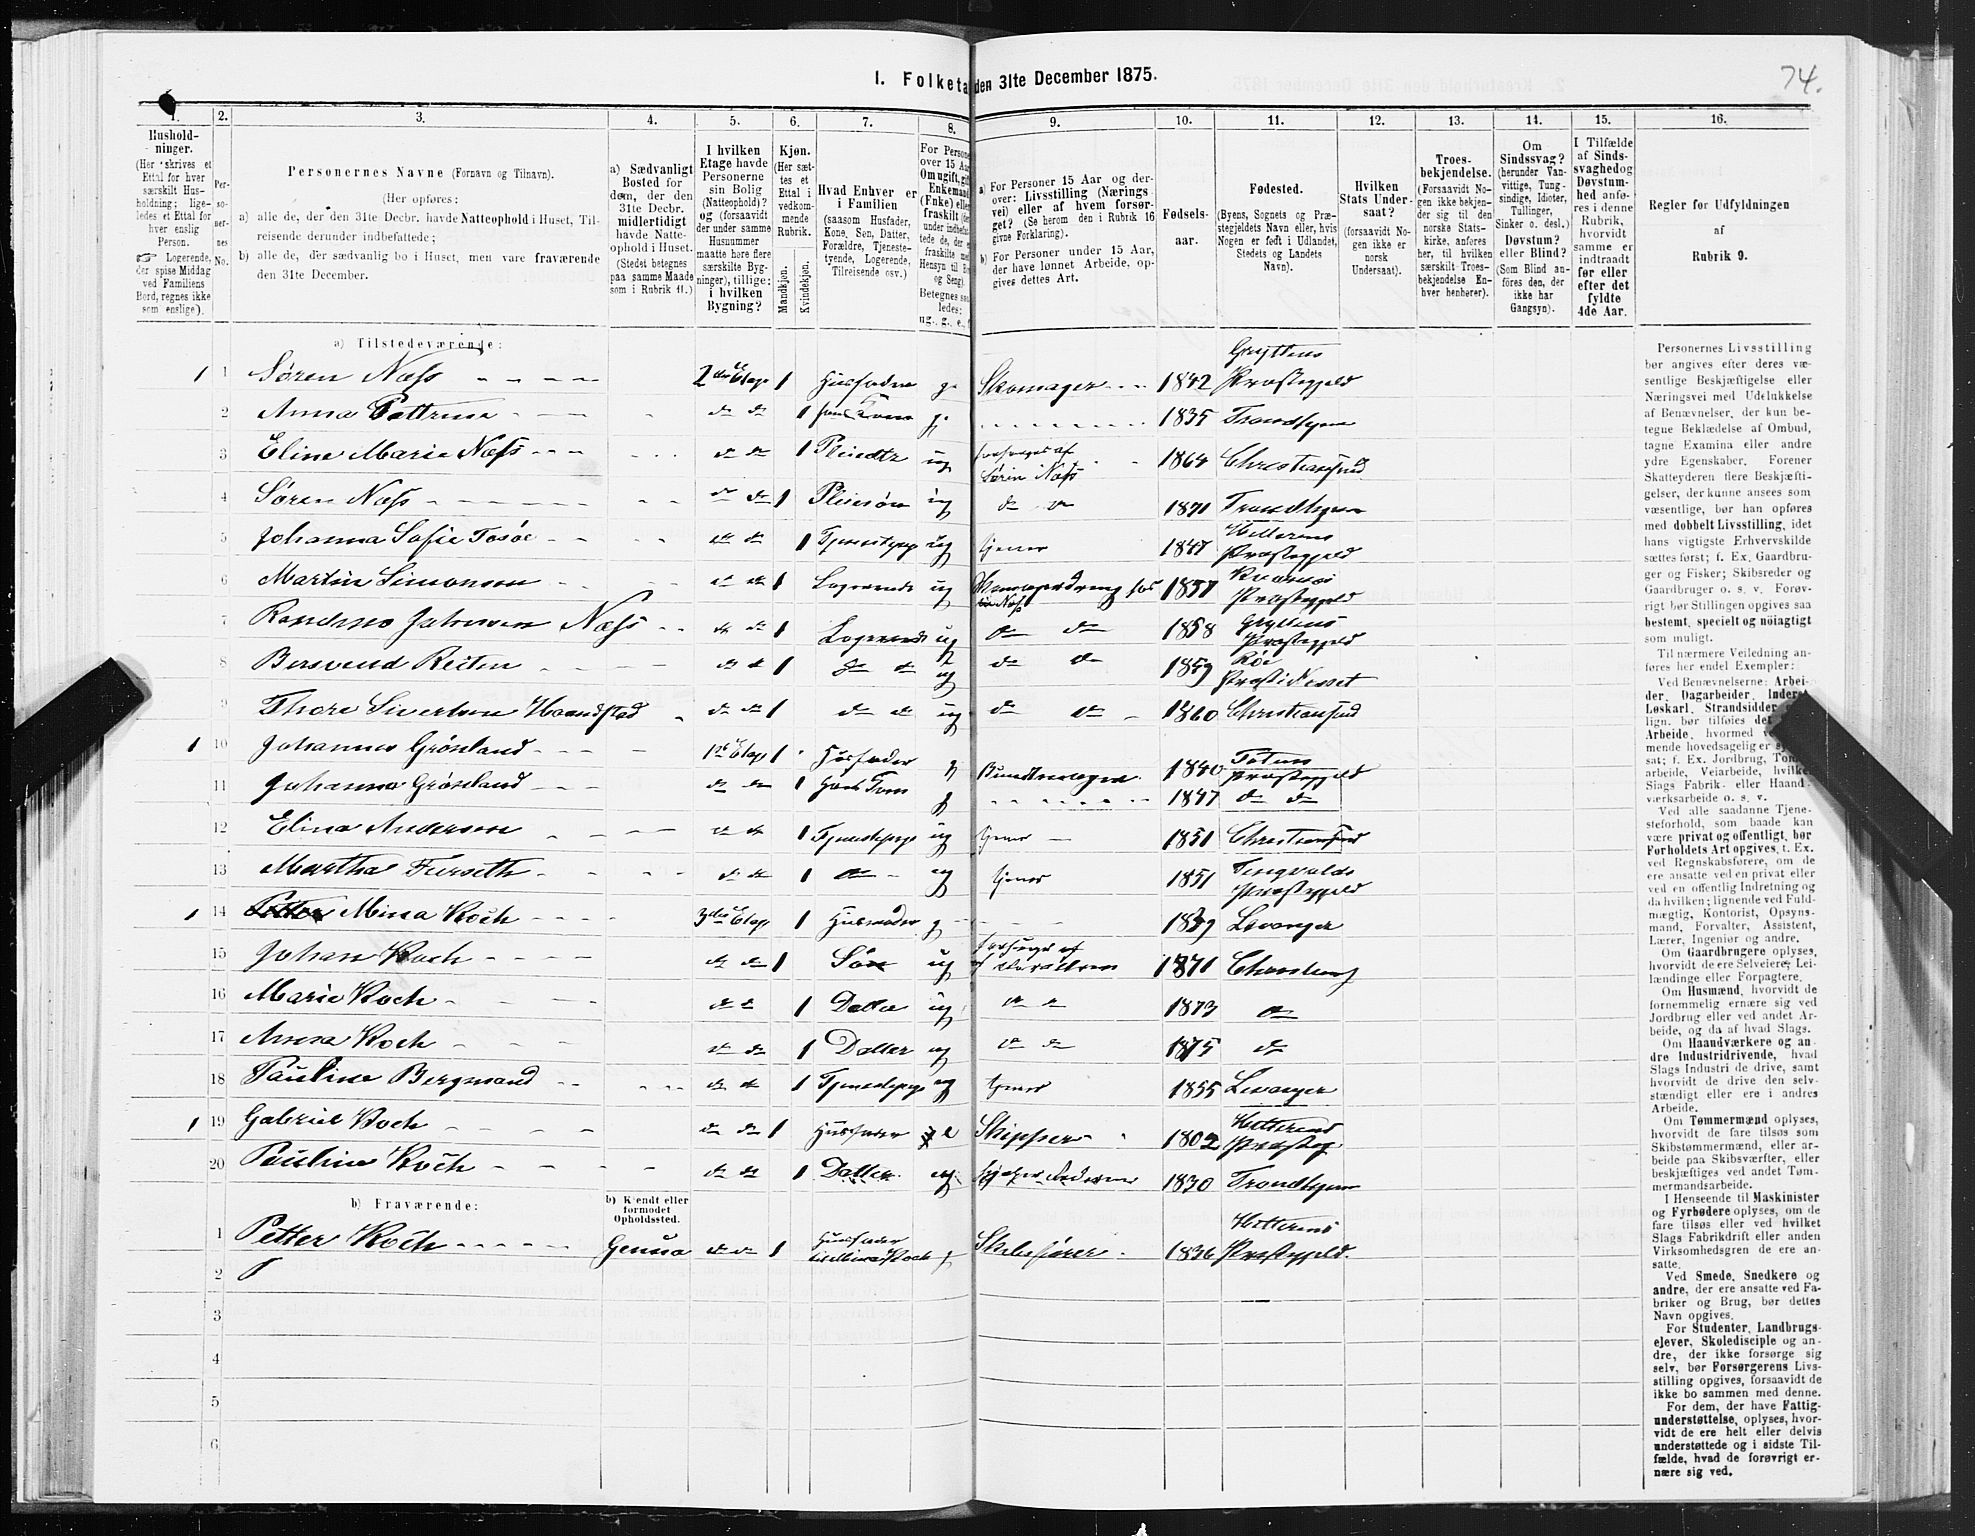 74.
I. Folketa den 31te December 1875.
1. 2. 3. 4. 5. 6. 7. 8. 9. 10. 11. 12. 13. 14. 15. 16.
Hushold-
ninger.
(Her skrives et
Ettal for hver
særskilt Hus-
holdning; lige-
ledes et Ettal for
hver enslig
Person.
☞ Logerende,
der spise Middag
ved Familiens
Bord, regnes ikke
som enslige).
Per-
so-
ner-
nes
No.
Personernes Navne (Fornavn og Tilnavn).
(Her opføres:
a) alle de, der den 31te Decbr. havde Natteophold i Huset, Til-
reisende derunder indbefattede;
b) alle de, der sædvanlig bo i Huset, men vare fraværende
den 31te December.
a) Sædvanligt
Bosted for
dem, der den
31te Decbr.
midlertidigt
havde Natte-
ophold i Huset.
(Stedet betegnes
paa samme Maade
som i Rubrik 11.)
I hvilken
Etage havde
Personerne
sin Bolig
(Natteophold)?
og (forsaavidt
der under samme
Husnummer
maatte høre flere
særskilte Byg-
ninger), tillige:
i hvilken
Bygning?
Kjøn.
(Her sæt-
tes et
Ettal i
vedkom-
mende
Rubrik.
Mandkjøn.
Kvindekjøn.
Hvad Enhver er
i Familien
(saasom Husfader,
Kone, Søn, Datter,
Forældre, Tjeneste-
tyende, Logerende,
Tilreisende osv.)
For Persone
over 15 Aar
Om ugift, gift,
Enkemand
(Enke) eller
fraskilt (de
under indbefat-
tede de, der e
fraskilte me
Hensyn til Bo
og Seng).
Betegnes saa
ledes:
ug., g., e., f
a) For Personer 15 Aar og der-
over: Livsstilling (Nærings-
vei) eller af hvem forsør-
get? (Se herom den i Rubrik 16
givne Forklaring).
b) For Personer under 15 Aar,
der have lønnet Arbeide, op-
gives dettes Art.
Fødsels-
aar.
Fødested.
(Byens, Sognets og Præ-
stegjeldets Navn eller, hvis
Nogen er født i Udlandet,
Stedets og Landets
Navn).
Hvilken
Stats Under-
saat?
(forsaavidt No-
gen ikke er
norsk
Undersaat).
Troes-
bekjendelse.
(Forsaavidt No-
gen ikke bekjen-
der sig til den
norske Stats-
kirke, anføres
her, til hvilken
særskilt Troes-
bekjendelse En-
hver henhører).
Om
Sindssvag?
(herunder Van-
vittige, Tung-
sindige, Idioter,
Tullinger,
Sinker o. desl.)
Døvstum?
eller Blind?
(Som Blind an-
føres den, der
ikke har
Gangsyn).
I Tilfælde
af Sinds-
svaghed og
Døvstum-
hed anfø-
res i denne
Rubrik,
hvorvidt
samme er
indtraadt
før eller
efter det
fyldte
4de Aar.
Regler før Udfyldningen
af
Rubrik 9.
a) Tilstedeværende:
1 1 Søren Næss 2den Etage 1 Husfader g. Skomager 1842 Gryttens Præstegjeld
2 Anna Pettrine do do 1 hans Kone g. 1835 Trondhjem
3 Eline Marie Næss do do 1 Pleiedtr ug forsørges af Søren Næss 1864 Christiansund
4 Søren Næss do do 1 Pleiesøn ug do do 1871 Trondhjem
5 Johanna Sofie Tosøe do do 1 Tjenestepige ug tjener 1847 Hitterens Præstegjeld
6 Martin Simonsen do do 1 Logerende ug 1857 Præstegjeld
7 Johnsen Næss do do 1 Logerende ug do do 1858 Gryttens Præstegjeld
8 Bersvend Reiten do do 1 do do ug do do 1859 Præst Nesset
9 Thore Sivertsen Haandstad do do 1 do do ug do do 1860 Christiansund
1 10 Johannes Grønland 1ste Etage 1 Husfader g Buntmager 1840 Totens Præstegjeld
11 Johanna Grønland do do 1 hans Kone g 1847 do do
12 Elina Andersen do do 1 Tjenestepige ug tjener 1851 Christiansund
13 Martha Furseth do do 1 do ug tjener 1851 Tingvolds Præstegjeld
1 14 Petter Mina Koch 3die Etage 1 Husmoder g 1839 Levanger
15 Johan Koch do do 1 Søn ug forsørges af Forældrene 1871 Christians
16 Marie Koch do do 1 Datter ug do do 1873 do
17 Anna Koch do do 1 Datter ug do do 1875 do
18 Pauline Bergmand do do 1 Tjenestepige ug tjener 1855 Levanger
1 19 Gabriel Koch do do 1 Husfader e Skipper 1802 Hitterens Præsteg
20 Pauline Koch do do 1 Datter ug hjelper Faderen 1830 Trondhjem
b) Fraværende:
b) Kjendt eller
formodet
Opholdssted.
1 Petter Koch Genua do do 1 Husfader til Mina Koch g Skibsfører 1836 Hitterens Præstegjeld.
2
3
4
5
6
Personernes Livsstilling
bør angives efter deres væ-
sentlige Beskjæftigelse eller
Næringsvei med Udelukkelse
af Benævnelser, der kun be-
tegne Beklædelse af Ombud,
tagne Examina eller andre
ydre Egenskaber. Forener
Skatteyderen flere Beskjæfti-
gelser, der kunne ansees som
væsentlige, bør han opføres
med dobbelt Livsstilling, idet
hans vigtigste Erhvervskilde
sættes først; f. Ex. Gaardbru-
ger og Fisker; Skibsreder og
Gaardbruger o. s. v. Forøv-
rigt bør Stillingen opgives saa
bestemt, specielt og nøiagtigt
som muligt.
Til nærmere Veiledning an-
føres her endel Exempler:
Ved Benævnelserne: Arbei-
der, Dagarbeider, Inderst,
Løskarl, Strandsidder
lign. bør tilføies det
Arbeide, hvormed v
mende hovedsagelig er sy
sat; f. Ex. Jordbrug, Tom
arbeide, Veiarbeide, hvilke
Slags Fabrik- eller Haand-
værksarbeide o. s. v.
Ved alle saadanne Tjene-
steforhold, som baade kan
være privat og offentligt, bør
Forholdets Art opgives, t. Ex.
ved Regnskabsførere, om de
ere ansatte ved en privat eller
ved en offentlig Indretning og
da hvilken; lignende ved Fuld-
mægtig, Kontorist, Opsyns-
mand, Forvalter, Assistent,
Lærer, Ingeniør og andre.
Om Gaardbrugere oplyses,
hvorvidt de ere Selveiere, Lei-
lændinge eller Forpagtere.
Om Husmænd, hvorvidt de
fornemmelig ernære sig ved
Jordbrug eller ved andet Ar-
beide, og da af hvad Slags.
Om Haandværkere og an-
dre Industridrivende, hvad
Slags Industri de drive, samt
hvorvidt de drive den selv-
stændigt eller ere i andres
Arbeide.
Om Tømmermænd oplyses,
hvorvidt de fare tilsøs som
Skibstømmermænd, eller ar-
beide paa Skibsværfter, eller
beskjæftiges ved andet Tøm-
mermandsarbeide.
I Henseende til Maskinister
og Fyrbødere oplyses, om de
fare tilsøs eller ved hvilket
Slags Fabrikdrift eller anden
Virksomhedsgren de ere an-
satte.
Ved Smede, Snedkere og
andre, der ere ansatte ved Fa-
briker og Brug, bør dettes
Navn opgives.
For Studenter, Landbrugs-
elever, Skoledisciple og an-
dre, der ikke forsørge sig
selv, bør Forsørgerens Livs-
stilling opgives, forsaavidt de
ikke bo sammen med denne.
For dem, der have Fattig-
understøttelse, oplyses, hvor-
vidt de ere helt eller delvis
understøttede og i sidste Til-
fælde, hvad de forøvrigt er-
nære sig ved.